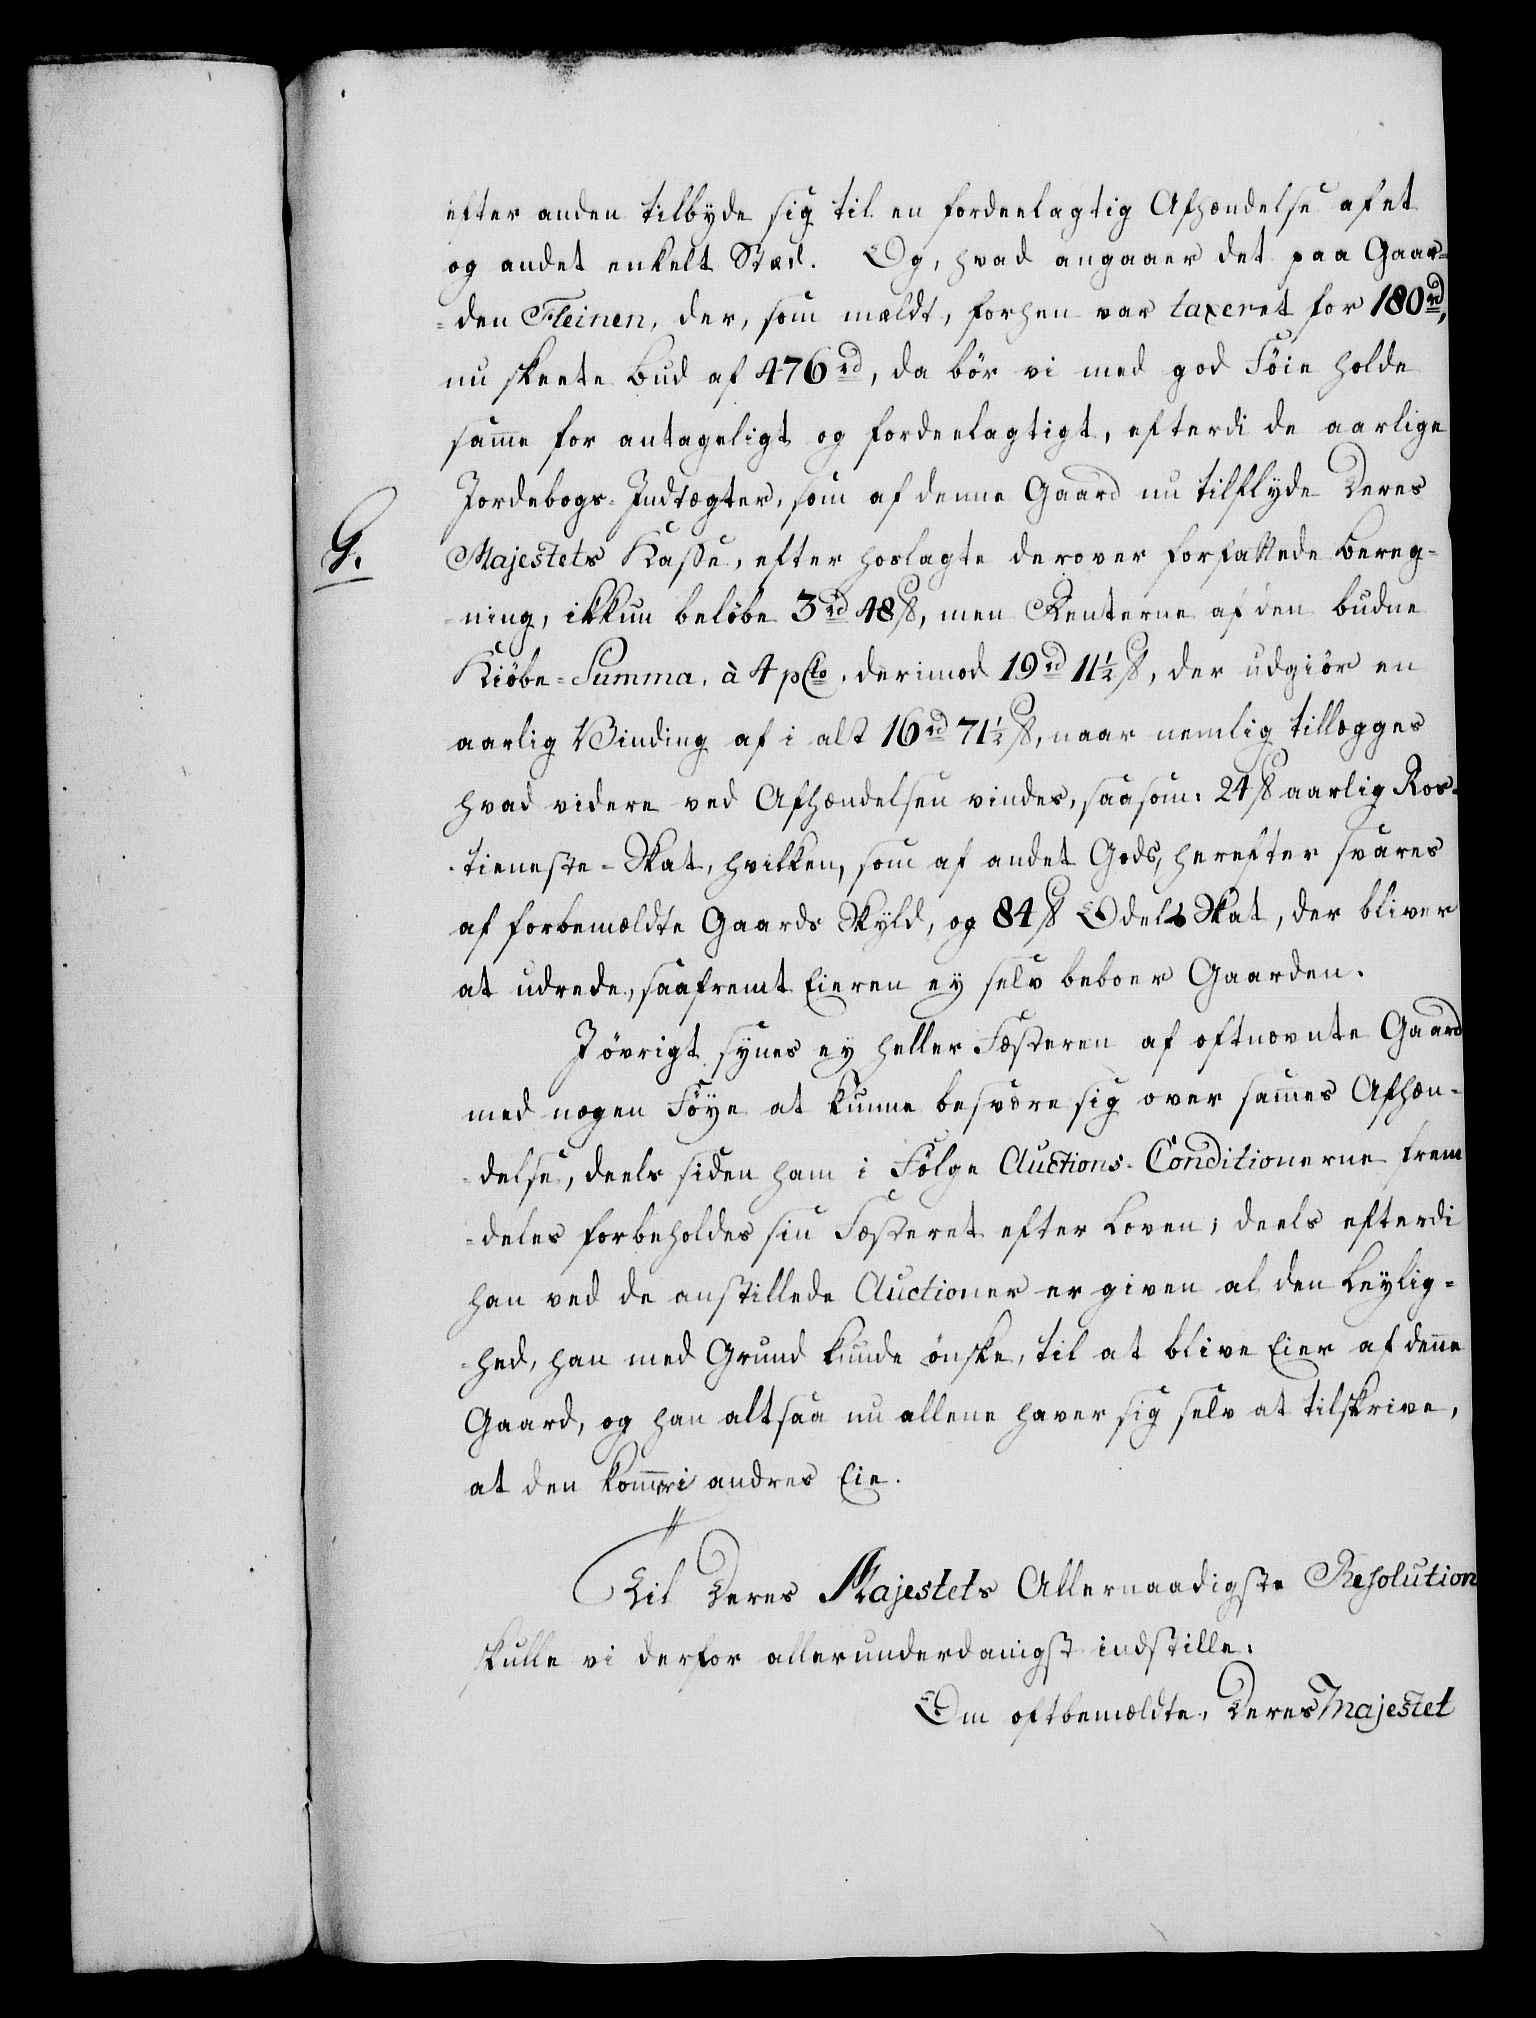 efter anden tilbyde sig til en fordeelagtig Afhændelse af et
og andet enkelt Stæd. Og, hvad angaaer det paa Gaar=
=den Fleinen, der, som meldt, forhen var taxeret for 180 rd,
nu skeete Bud af 476 rd, da bör vi med god Föie holde
samme for antageligt og fordeelagtigt, efterdi de aarlige
Jordebogs-Indtægter, som af denne Gaard nu tilflyde Deres
G.
Majestets Kasse, efter hoslagte derover forfattede Bereg=
=ning, ikkun belöbe 3 rd 48 ß, men Renterne af den budne
Kiöbe=Summa, à 4 pCto, derimod 19 rd 11½ ß, der udgiör en
aarlig Vinding af i alt 16 rd 71½ ß, naar nemlig tillægges
hvad videre ved Afhændelsen vindes, saasom: 24 ß aarlig Ros=
=tieneste-Skat, hvilken, som af andet Gods, herefter svares
af forbemældte Gaards Skyld, og 84 ß Odels Skat, der bliver
at udrede, saafremt Eieren ey selv beboer Gaarden.
I övrigt synes ey heller Fæsteren af oftnævnte Gaard
med nogen Föye at kunne besvære sig over sammes Afhæn=
=delse, deels siden ham i Fölge Auctions-Conditionerne frem
=deles forbeholdes sin Fæsteret efter Loven; deels efterdi
han ved de anstillede Auctioner er given al den Leylig=
=hed, han med Grund kunde önske, til at blive Eier af denne
Gaard, og han altsaa nu allene haver sig selv at tilskrive,
at den kommer i andres Eie.
Til Deres Majestets Allernaadigste Resolution
skulle vi derfor allerunderdanigst indstille:
Om oftbemældte, Deres Majestet